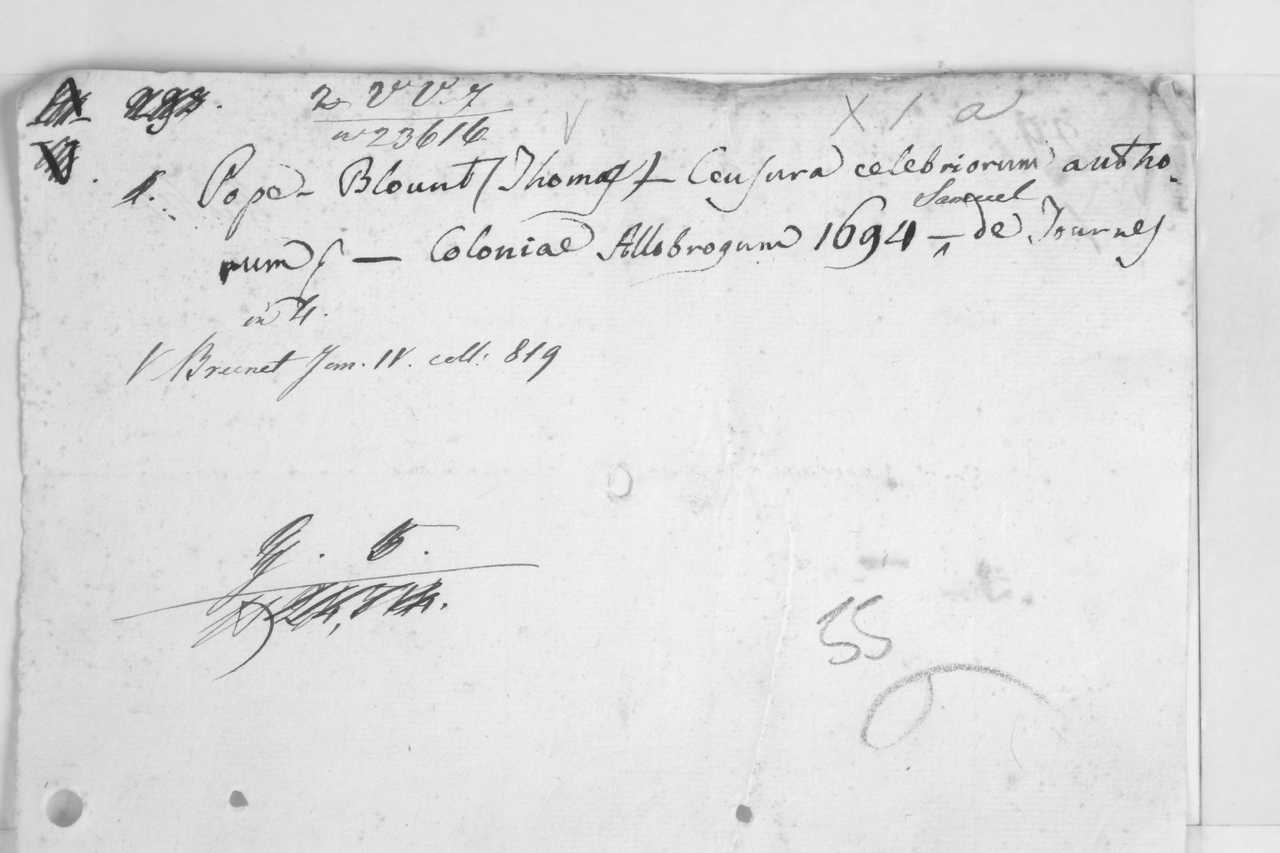 2 VV. 7
nº 23616
X 1 a
1. Pope-Blount (Thomas) - Censura celebriorum autho-
rum - Coloniae Allobrogum 1694 - Samuel de Tournes
in 4.
V Brunet Tom. IV. coll: 819
G. 5.
55